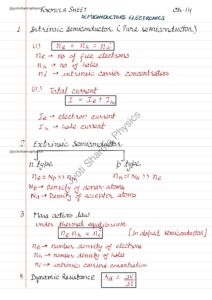 FORMULA SHEET Ch-14
SEMICONDUCTORS ELECTRONICS
1 Intrinsic Semiconductor (Pure semiconductor)
(i) ne = nh = ni
ne → no of free electrons
nh → no of holes
ni → intrinsic carrier concentration
(ii) Total current
I = Ie + Ih
Ie → electron current
Ih → hole current
2 Extrinsic Semiconductor
n type p type
ne ≈ ND >> nh nh ≈ NA >> ne
ND → Density of donor atoms
NA → Density of acceptor atoms
3 Mass action law
under thermal equilibrium
ne nh = ni² [In doped semiconductor]
ne → number density of electrons
nh → number density of holes
ni → intrinsic carriers concentration
4 Dynamic Resistance rd = ΔV/ΔI
Jyoti Sharma Physics